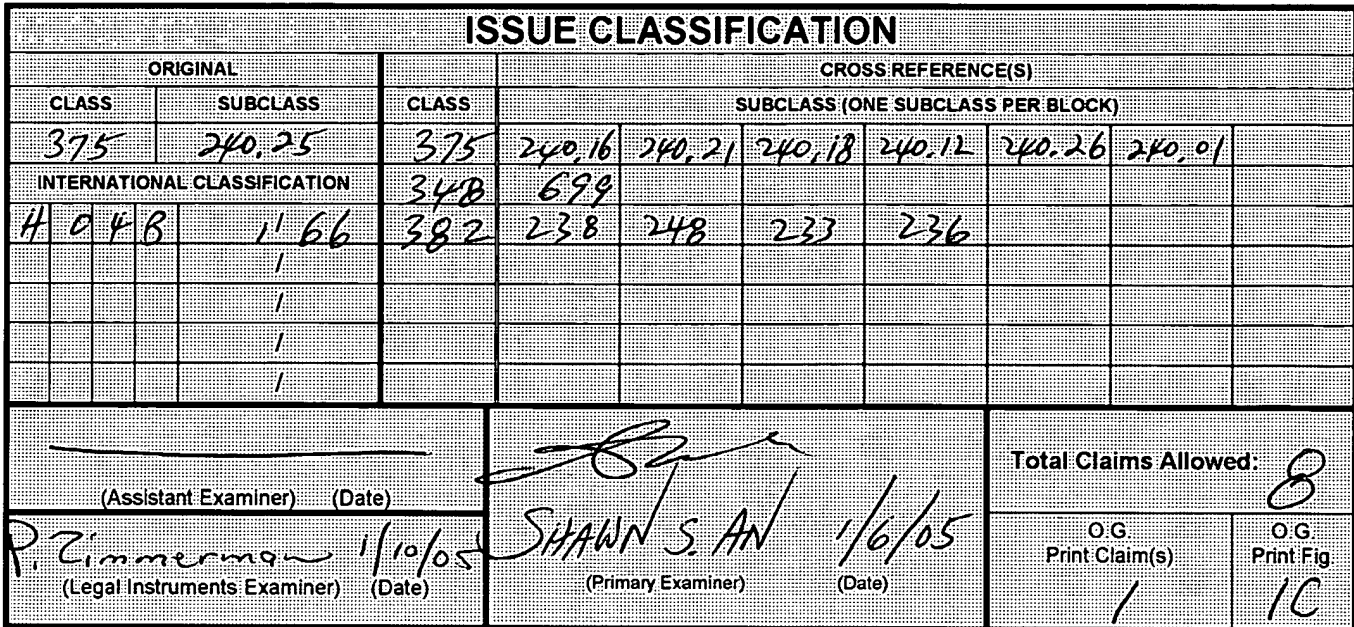 ISSUE CLASSIFICATION
ORIGINAL CROSS REFERENCE(S)
CLASS SUBCLASS CLASS SUBCLASS (ONE SUBCLASS PER BLOCK)
375 240.25 375 240.16 240.21 240.18 240.12 240.26 240.01
INTERNATIONAL CLASSIFICATION 348 699
H 0 4 B 1/66 382 238 248 233 236
/
/
/
/
(Assistant Examiner) (Date)
Total Claims Allowed: 8
P. Zimmerman 1/10/05
(Legal Instruments Examiner) (Date)
SHAWN S. AN 1/6/05
(Primary Examiner) (Date)
O.G.
Print Claim(s)
1
O.G.
Print Fig.
1C